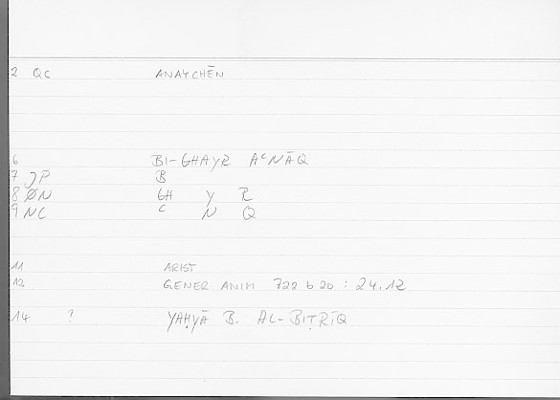 2 QC ANAYCHĒN
6 BI-GHAYR AᶜNĀQ
7 JP B
8 ØN GH Y R
9 NC ᶜ N Q
11 ARIST
12 GENER ANIM 722 b 20 : 24.12
14 ? YAḤYĀ B. AL-BIṬRĪQ